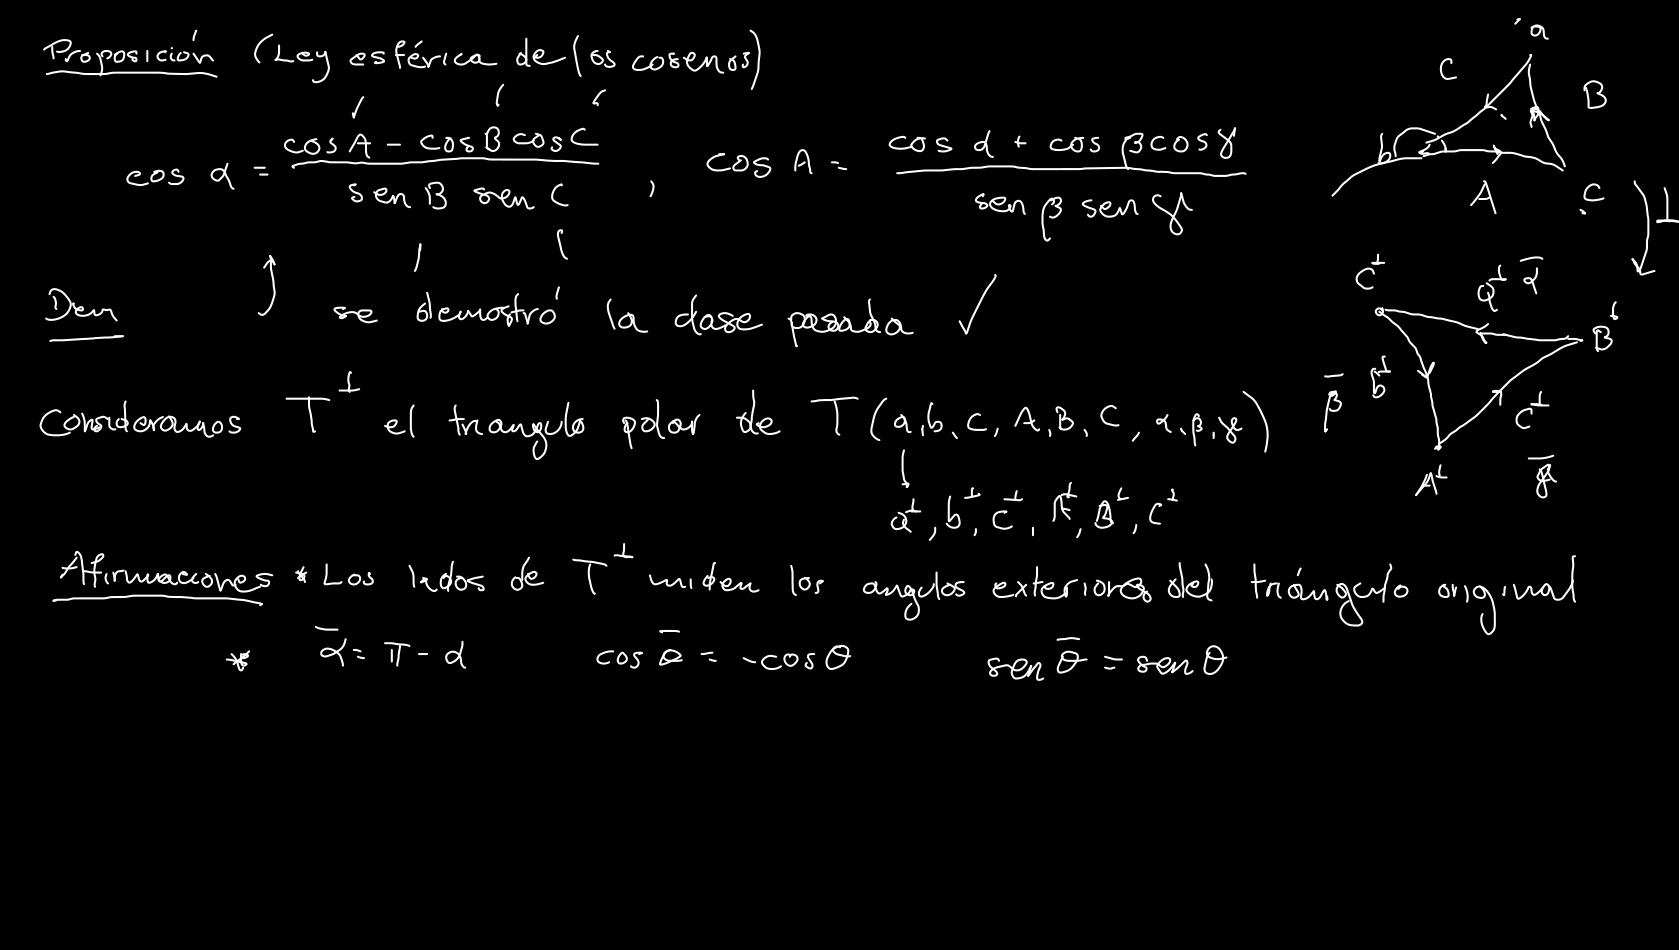 Proposición (Ley esférica de los cosenos)
cos α = (cos A - cos B cos C) / (sen B sen C) , cos A = (cos α + cos β cos γ) / (sen β sen γ)
Dem se demostró la clase pasada ✓
Consideramos T^⊥ el triangulo polar de T (a, b, c, A, B, C, α, β, γ)
a^⊥, b^⊥, c^⊥, A^⊥, B^⊥, C^⊥
Afirmaciones * Los lados de T^⊥ miden los angulos exteriores del triángulo original
* ᾱ = π - α cos θ̄ = -cos θ sen θ̄ = sen θ
a
C B
b
A c
⊥
c^⊥ a^⊥ ᾱ
B^⊥
β̄ b^⊥ c^⊥
A^⊥ γ̄